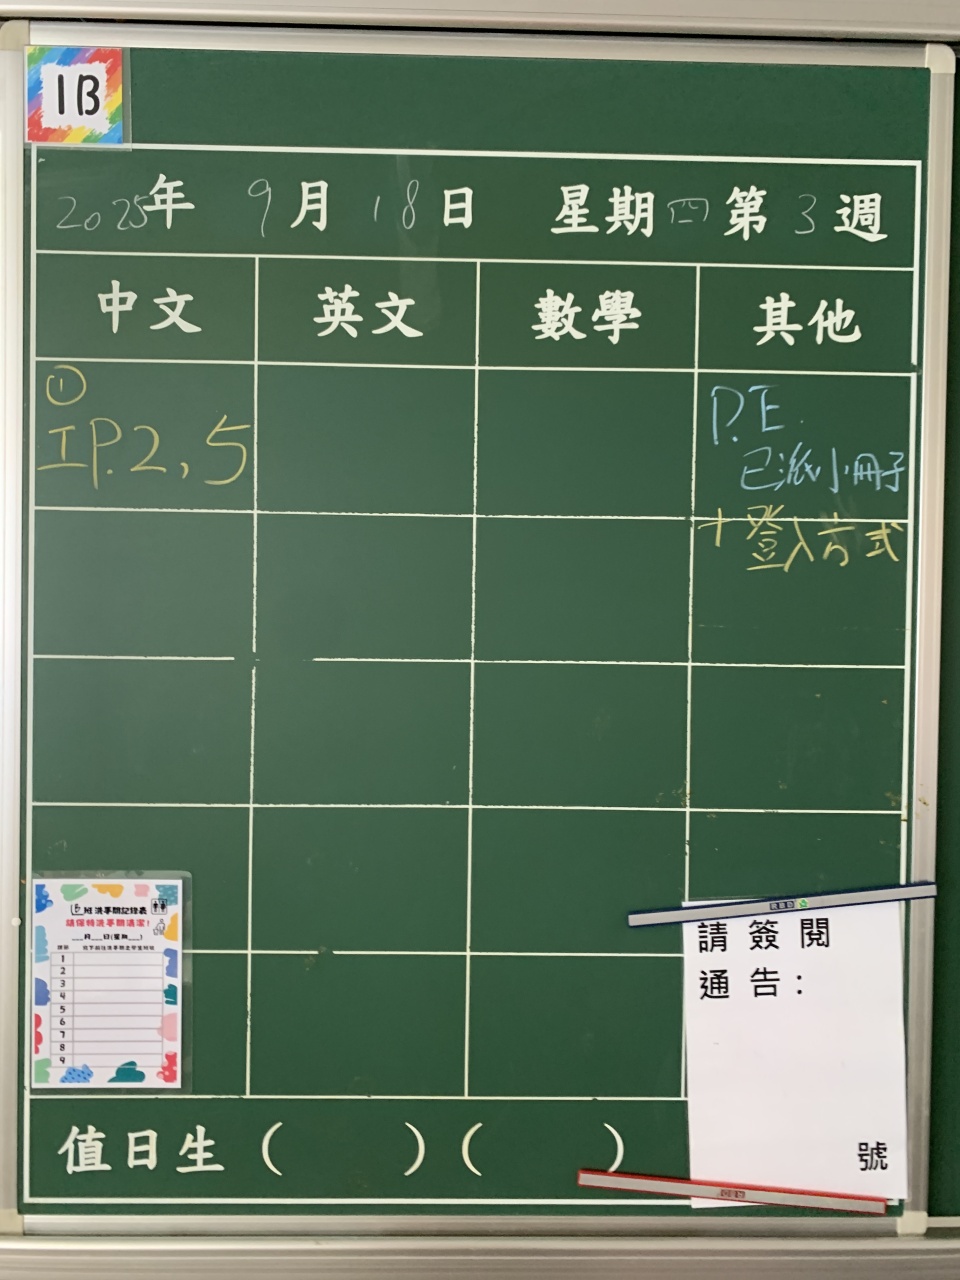 1B
2025年 9月 18日 星期四 第3週
中文 英文 數學 其他
①
工P.2,5
P.E.
已派小冊子
+登入方式
班洗手間記錄表
請保持洗手間清潔!
___月___日(星期___)
1
2
3
4
5
6
7
8
9
請簽閱
通告:
號
值日生( )( )